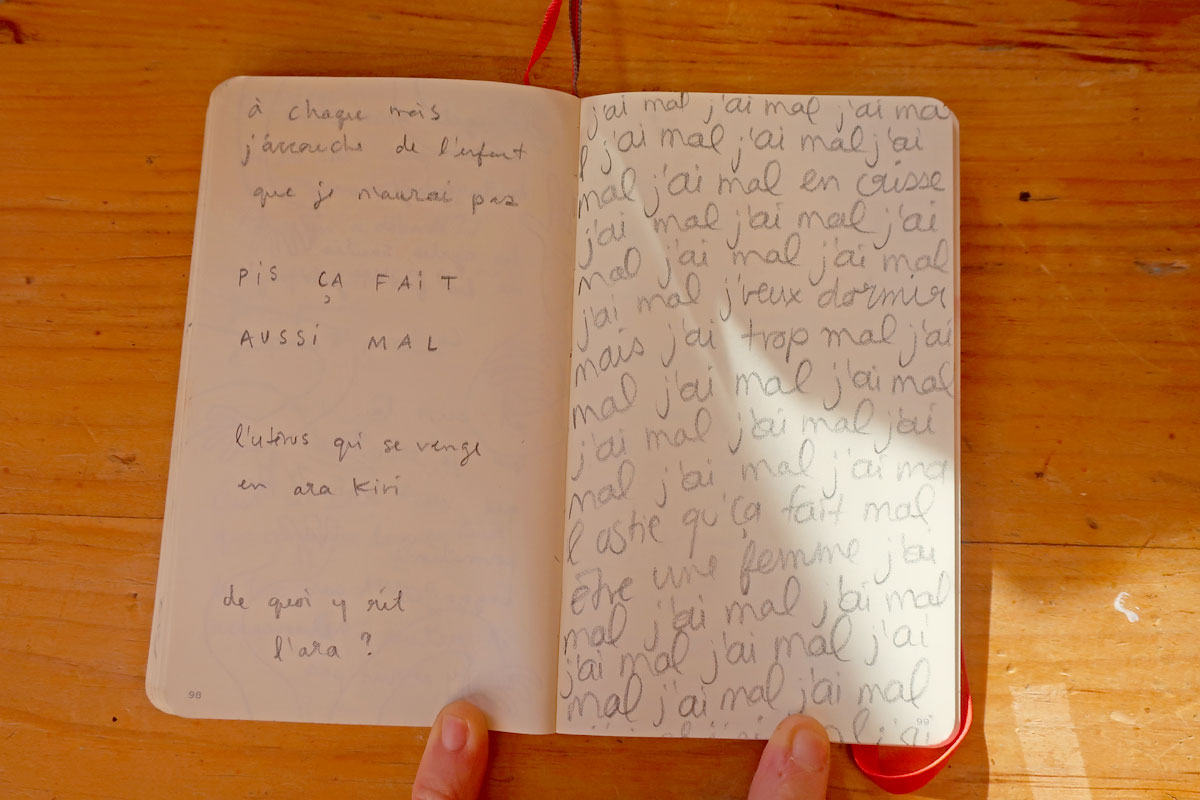 à chaque mois
j'accouche de l'enfant
que je n'aurai pas
PiS ÇA FAiT
AUSSi MAL
l'utérus qui se venge
en ara kiri
de quoi y rit
l'ara ?
98
j'ai mal j'ai mal j'ai ma
l j'ai mal j'ai mal j'ai
mal j'ai mal en crisse
j'ai mal j'ai mal j'ai
mal j'ai mal j'ai mal
j'ai mal j'veux dormir
mais j'ai trop mal j'ai
mal j'ai mal j'ai mal
j'ai mal j'ai mal j'ai
mal j'ai mal j'ai ma
l astie qu'ça fait mal
être une femme j'ai
mal j'ai mal j'ai mal
j'ai mal j'ai mal j'ai
mal j'ai mal j'ai mal
99